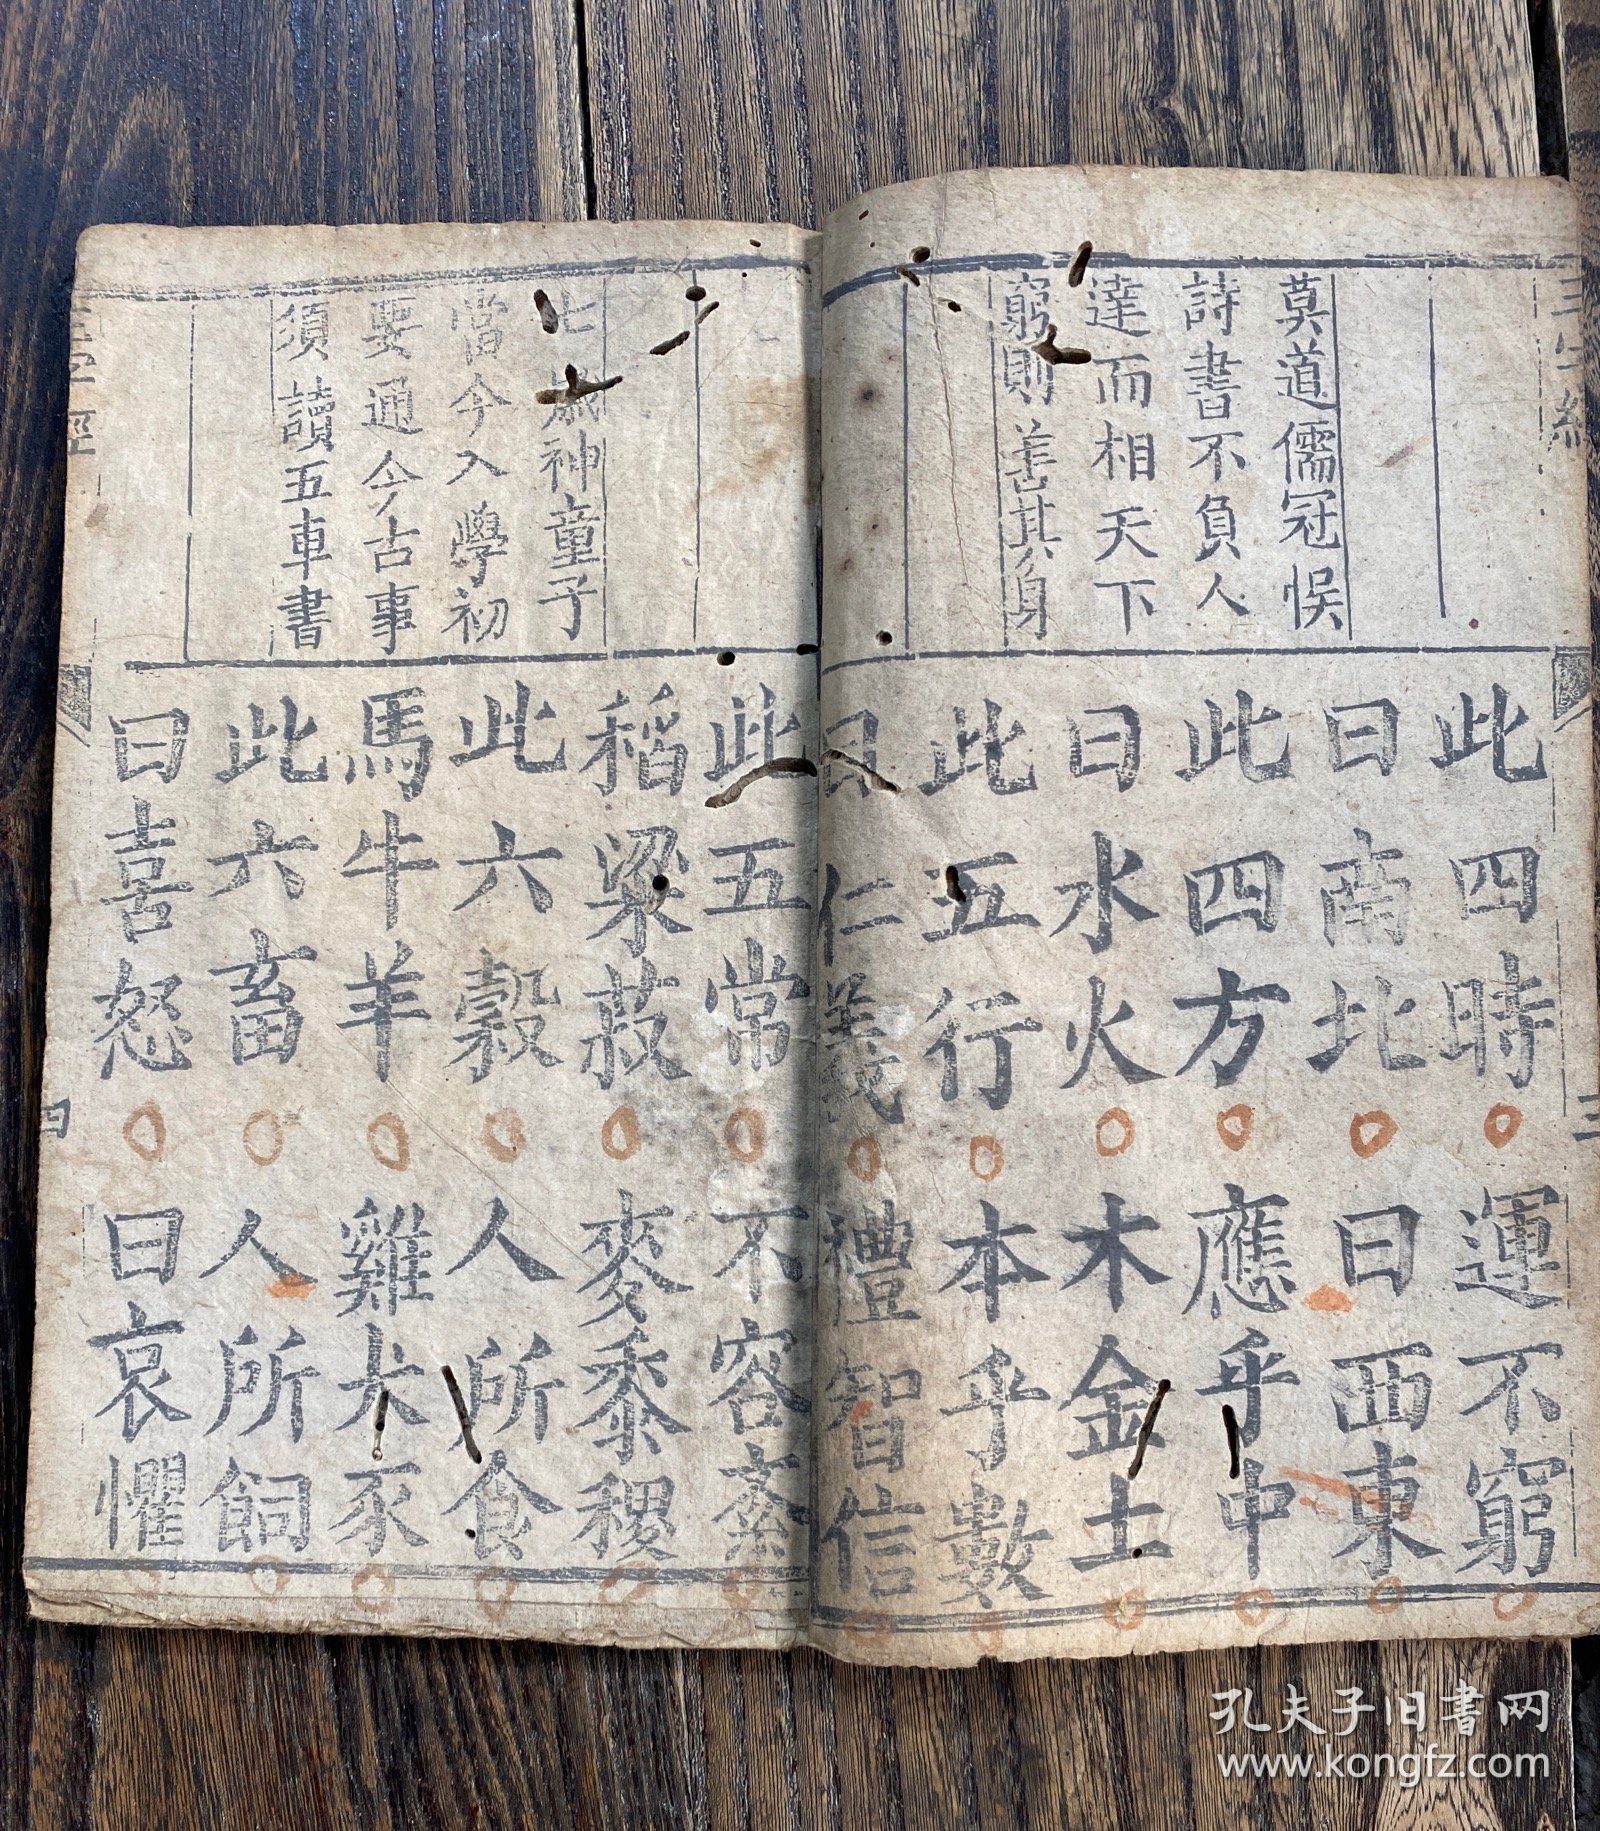 三字經
莫道儒冠悞
詩書不負人
達而相天下
窮則善其身
此四時運不窮
曰南北曰西東
此四方應乎中
曰水火木金土
此五行本乎數
曰仁義禮智信
三
七歲神童子
當今入學初
要通今古事
須讀五車書
此五常不容紊
稻粱菽麥黍稷
此六穀人所食
馬牛羊雞犬豕
此六畜人所飼
曰喜怒曰哀懼
三字經
四
孔夫子旧書网
www.kongfz.com